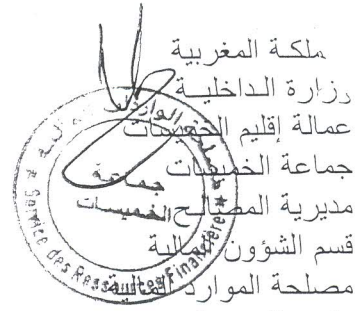 ملكة المغربية
وزارة الداخلية
عمالة إقليم الخميسات
جماعة الخميسات
مديرية المصالح
قسم الشؤون المالية
مصلحة الموارد المالية
جماعة
الخميسات
Service des Ressources Financières